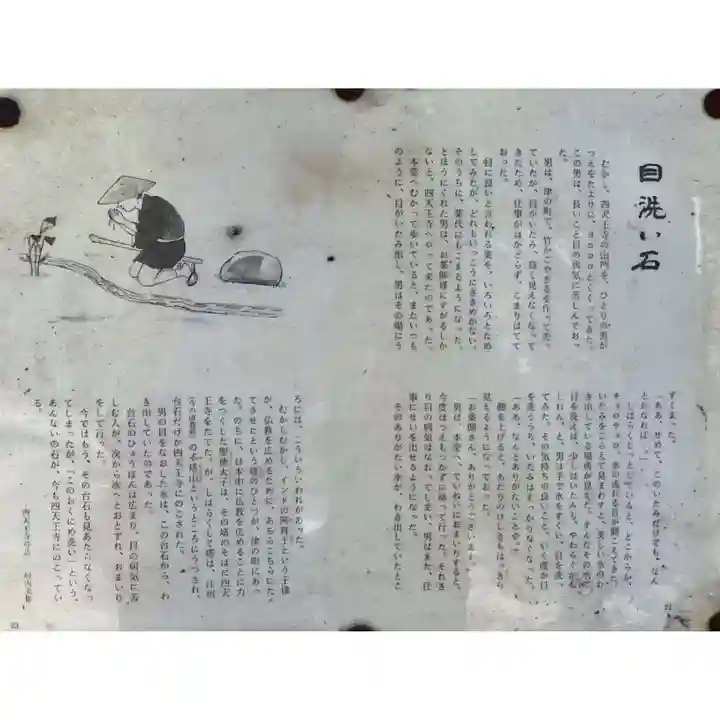 目洗い石
むかし、四天王寺の山門を、ひとりの男が
つえをたよりに、
この男は、長いこと目の病気に苦しんでおっ
た。
男は、津の町で、竹かごやざるを作ってた。
ていたが、目がいたみ、
きたため、仕事がはかどらず、こまりはてて
おった。
目に良いと言われる薬を、いろいろとため
してみたが、どれもいっこうにききめがない。
そのうちに、薬代にもこまるようになった。
とほうにくれた男は、お薬師様にすがるしか
ないと、四天王寺へやって来たのであった。
本堂へむかって歩いていると、またいつも
のように、目がいたみ出し、男はその場にう
ずくまった。
「ああ、せめて、このいたみだけでも、なん
とかなれば……。」
しばらくじっとしていると、どこからか、
チョロチョロ、水の流れる音が聞こえてきた。
いたみをこらえて見まわすと、美しい水のわ
き出している場所が見えた。
目を洗えば、少しはいたみも、やわらぐかも
しれん、と、男は手で水をすくい、目を洗っ
てみた。その気持ちの良いこと。
を洗ううち、いたみはすっかりなくなった。
「ああ、なんとありがたいことか。」
顔を上げると、あたりのけしきもはっきり
見えるようになっておった。
「お薬師さん、ありがとうございます。」
男は、本堂へ、ていねいにおまいりすると、
今度はつえももたずに帰って行った。それき
り目の病気はなおってしまい、男はまた、仕
事にせいを出せるようになった。
そのありがたい水が、わき出していたとこ
22
ろには、こういういわれがあった。
むかしむかし、インドの阿育王という王様
が、仏教を広めるために、あちらこちらにた
てさせたという塔のひとつが、津の町にあっ
た。のちに、日本中に仏教を広めることに力
をつくした聖徳太子は、その塔のそばに四天
王寺をたてた。が、しばらくして塔は、
というところにうつされ、
台石だけが四天王寺にのこされた。
男の目をなおした水は、この台石から、わ
き出していたのであった。
台石のひょうばんは広まり、目の病気に苦
しむ人が、次から次へとおとずれ、おまいり
をして行った。
今ではもう、その台石も見あたらなくなっ
てしまったが、「このおくに目洗い」という、
あんないの石が、今も四天王寺にのこってい
る。
23